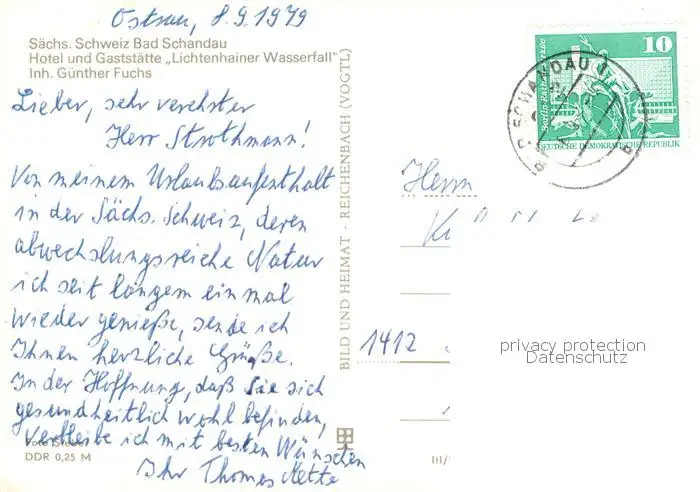 Ostrau, 8.9.1979
Sächs. Schweiz Bad Schandau
Hotel und Gaststätte „Lichtenhainer Wasserfall"
Inh. Günther Fuchs
Lieber, sehr verehrter
Herr Strothmann!
Von meinem Urlaubsaufenthalt
in der Sächs. Schweiz, deren
abwechslungsreiche Natur
ich seit langem einmal
wieder genieße, sende ich
Ihnen herzliche Grüße.
In der Hoffnung, daß Sie sich
gesundheitlich wohl befinden,
verbleibe ich mit besten Wünschen
Ihr Thomas
DDR 0,25 M
BILD UND HEIMAT · REICHENBACH (VOGTL)
III/
10
DEUTSCHE DEMOKRATISCHE REPUBLIK
SCHANDAU
Herrn
1412
privacy protection
Datenschutz